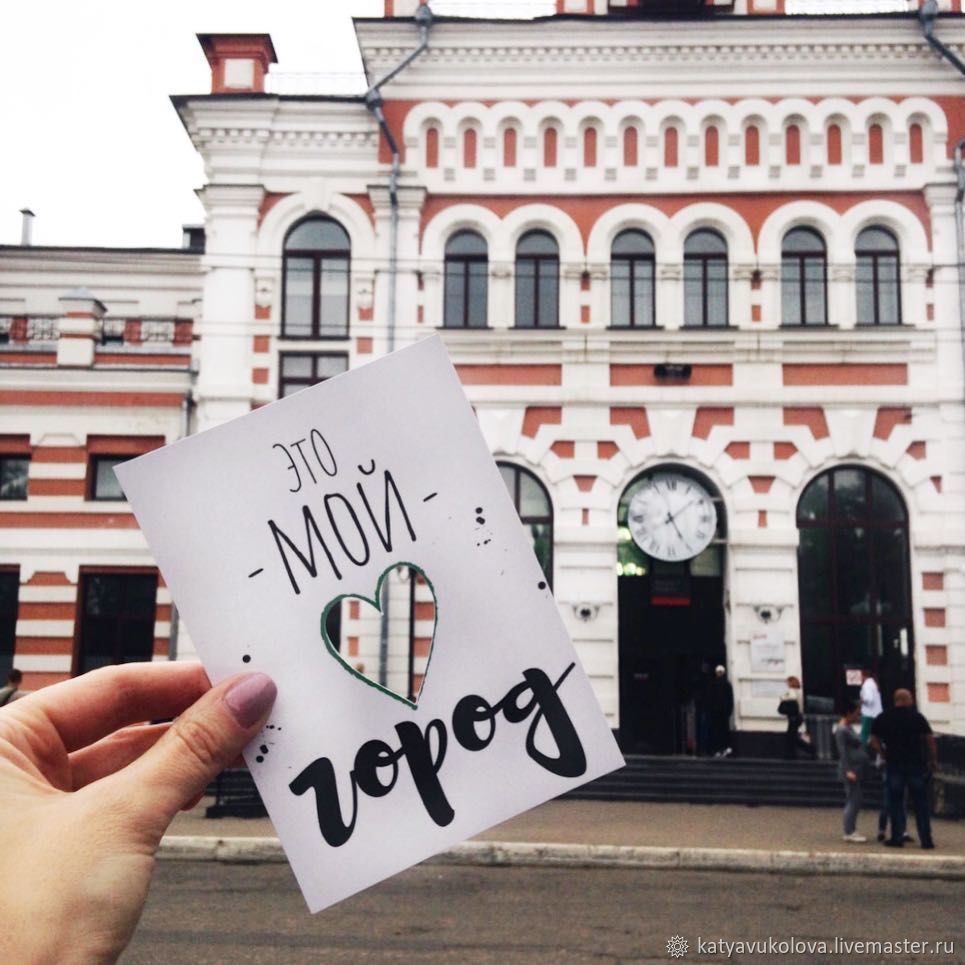 это
- МОЙ -
город
katyavukolova.livemaster.ru